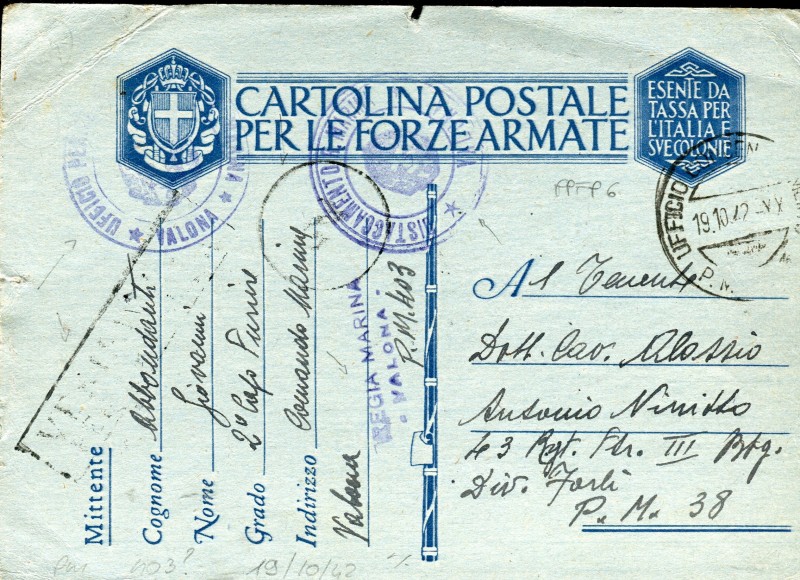 CARTOLINA POSTALE
PER LE FORZE ARMATE
ESENTE DA
TASSA PER
L'ITALIA E
SVE COLONIE
UFFICIO
VALONA
DISTACCAMENTO
FPFP6
UFFICIO
19.10.42.XX
P.M.
Mittente
Cognome Abbondanti
Nome Giovanni
Grado 2° Capo Furiere
Indirizzo Comando Marina
Valona
P.M. 403
REGIA MARINA
- VALONA -
Al Tenente
Dott. Cav. Alossio
Antonio
43 Rgt. Ftr. III Btg.
Div. Forlì
P. M. 38
403?
19/10/42